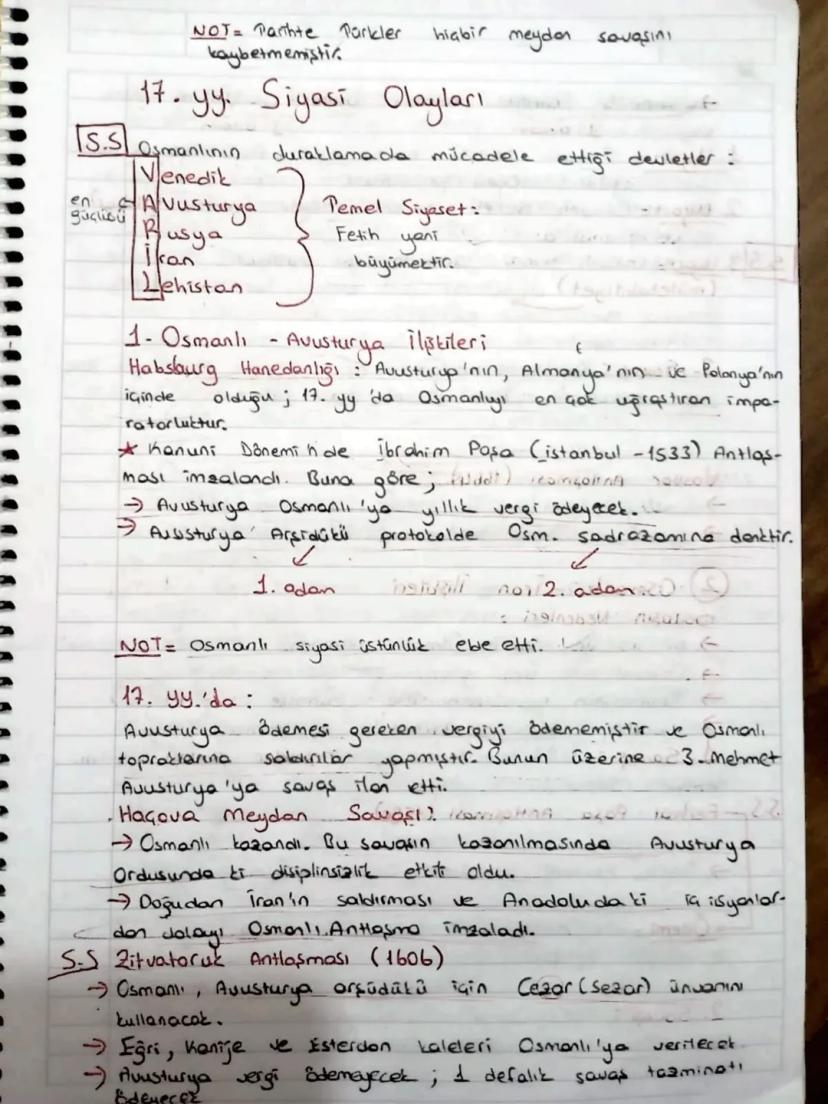 NOT= Tarihte Türkler hiçbir meydan savaşını
kaybetmemiştir.
17. yy. Siyasi Olayları
S.S Osmanlının duraklamada mücadele ettiği devletler :
Venedik
en güçlüsü
Avusturya
Rusya
İran
Lehistan
Temel Siyaset:
Fetih yani
büyümektir.
1- Osmanlı - Avusturya İlişkileri
Habsburg Hanedanlığı : Avusturya'nın, Almanya'nın ve Polonya'nın
içinde olduğu ; 17. yy 'da Osmanlıyı en çok uğraştıran impa-
ratorluktur.
* Kanuni Dönemi'nde İbrahim Paşa (istanbul - 1533) Antlaş-
ması imzalandı. Buna göre ;
→ Avusturya Osmanlı 'ya yıllık vergi ödeyecek.
→ Avusturya Arşidükü protokolde Osm. sadrazamına denktir.
1. adam 2. adam
NOT= Osmanlı siyasi üstünlük elde etti.
17. yy.'da :
Avusturya ödemesi gereken vergiyi ödememiştir ve Osmanlı
topraklarına saldırılar yapmıştır. Bunun üzerine 3. Mehmet
Avusturya 'ya savaş ilan etti.
Haçova Meydan Savaşı:
→ Osmanlı kazandı. Bu savaşın kazanılmasında Avusturya
Ordusunda ki disiplinsizlik etkili oldu.
→ Doğudan İran'ın saldırması ve Anadoludaki iç isyanlar-
dan dolayı Osmanlı Antlaşma imzaladı.
S.S Zitvatoruk Antlaşması (1606)
→ Osmanlı, Avusturya arşüdükü için Cezar (Sezar) ünvanını
kullanacak.
→ Eğri, Kanije ve Esterdon kaleleri Osmanlı'ya verilecek
→ Avusturya vergi ödemeyecek ; 1 defalık savaş tazminatı
ödeyecek